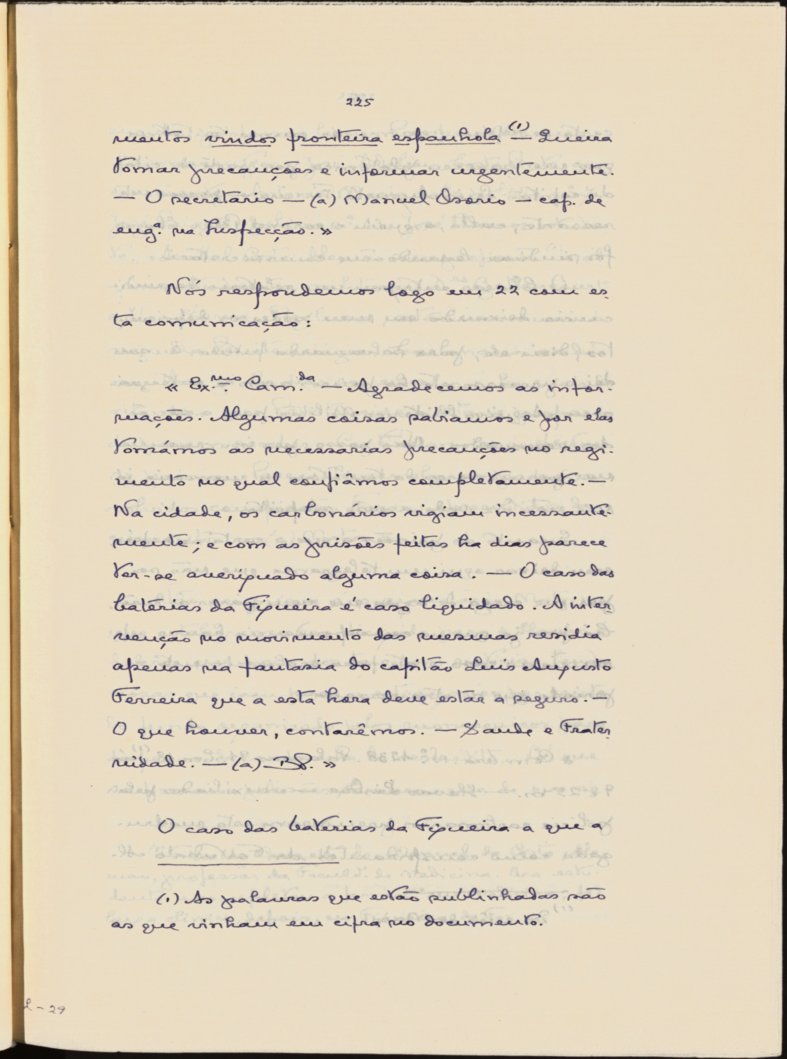 225
mentos vindos fronteira espanhola (1) — Queira
tomar precauções e informar urgentemente.
— O secretario — (a) Manuel Osorio — cap. de
eng.ª na Inspecção. »
Nós respondemos logo em 22 com es-
ta comunicação:
« Ex.mo Cam.da — Agradecemos as infor-
mações. Algumas coisas sabiamos e por elas
tomámos as necessarias precauções no regi-
mento no qual confiâmos completamente. —
Na cidade, os carbonários vigiam incessante-
mente; e com as prisões feitas ha dias parece
ter-se averiguado alguma coisa. — O caso das
batérias da Figueira é caso liquidado. A inter-
venção no movimento das mesmas residia
apenas na fantasia do capitão Luis Augusto
Ferreira que a esta hora deve estar a seguro. —
O que houver, contarêmos. — Saude e Frater-
nidade. — (a) BP. »
O caso das baterias da Figueira a que a
(1) As palavras que estão sublinhadas são
as que vinham em cifra no documento.
L - 29